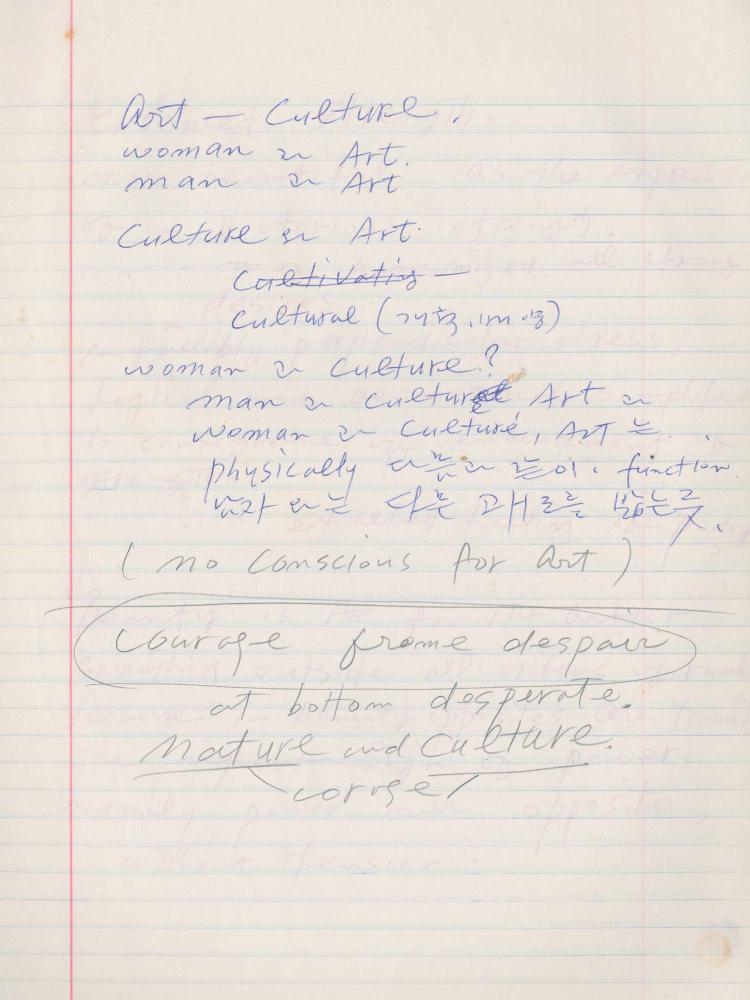 Art — Culture.
woman 과 Art.
man 과 Art
Culture 와 Art.
Cultivating —
Cultural (개척,
woman 과 Culture?
man 과 Culture Art 과
woman 과 Culture, Art 는.
physically 다름과 같이. function
남자 와는 다른 괘도를 밟는 듯.
(no conscious for art)
Courage frome despair
at bottom desperate.
nature and Culture.
corage